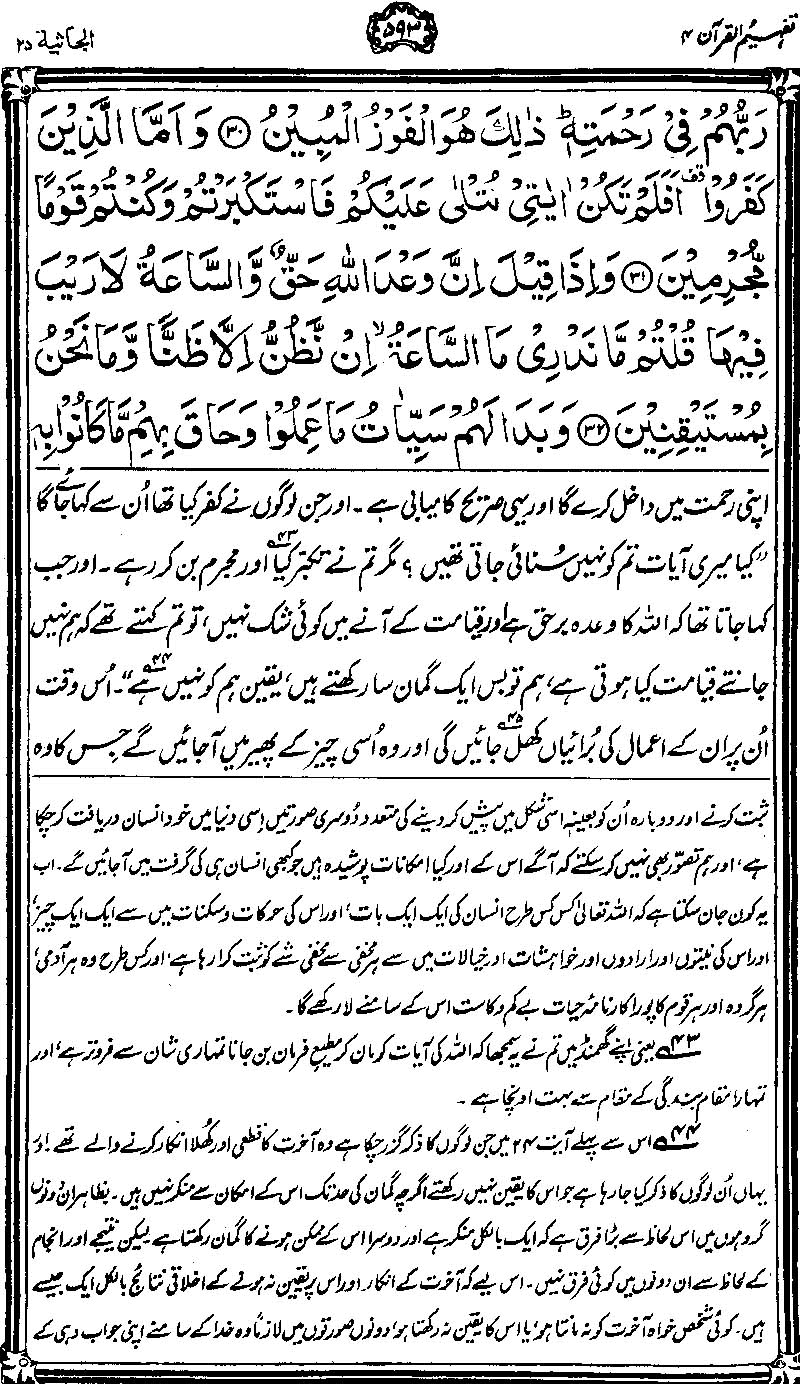 تفہیم القرآن ۴
۵۹۳
الجاثیۃ ۴۵
رَبُّهُمْ فِیْ رَحْمَتِهٖ ؕ ذٰلِكَ هُوَ الْفَوْزُ الْمُبِیْنُ ﴿۳۰﴾ وَ اَمَّا الَّذِیْنَ
كَفَرُوْا ۫ اَفَلَمْ تَكُنْ اٰیٰتِیْ تُتْلٰی عَلَیْكُمْ فَاسْتَكْبَرْتُمْ وَ كُنْتُمْ قَوْمًا
مُّجْرِمِیْنَ ﴿۳۱﴾ وَ اِذَا قِیْلَ اِنَّ وَعْدَ اللّٰهِ حَقٌّ وَّ السَّاعَةُ لَا رَیْبَ
فِیْهَا قُلْتُمْ مَّا نَدْرِیْ مَا السَّاعَةُ ۙ اِنْ نَّظُنُّ اِلَّا ظَنًّا وَّ مَا نَحْنُ
بِمُسْتَیْقِنِیْنَ ﴿۳۲﴾ وَ بَدَا لَهُمْ سَیِّاٰتُ مَا عَمِلُوْا وَ حَاقَ بِهِمْ مَّا كَانُوْا بِهٖ
اپنی رحمت میں داخل کرے گا اور یہی صریح کامیابی ہے۔ اور جن لوگوں نے کفر کیا تھا اُن سے کہا جائے گا
”کیا میری آیات تم کو نہیں سُنائی جاتی تھیں؟ مگر تم نے تکبّر کیا۴۳ اور مجرم بن کر رہے۔ اور جب
کہا جاتا تھا کہ اللہ کا وعدہ برحق ہے اور قیامت کے آنے میں کوئی شک نہیں، تو تم کہتے تھے کہ ہم نہیں
جانتے قیامت کیا ہوتی ہے، ہم تو بس ایک گمان سا رکھتے ہیں، یقین ہم کو نہیں ہے۴۴“۔ اُس وقت
اُن پر ان کے اعمال کی بُرائیاں کھل جائیں گی۴۵ اور وہ اُسی چیز کے پھیر میں آجائیں گے جس کا وہ
ثبت کرنے اور دوبارہ اُن کو بعینہٖ اسی شکل میں پیش کر دینے کی متعدد دُوسری صورتیں اِسی دنیا میں خود انسان دریافت کر چکا
ہے، اور ہم تصوّر بھی نہیں کر سکتے کہ آگے اس کے اور کیا امکانات پوشیدہ ہیں جو کبھی انسان ہی کی گرفت میں آجائیں گے۔ اب
یہ کون جان سکتا ہے کہ اللہ تعالیٰ کس کس طرح انسان کی ایک ایک بات، اور اس کی حرکات و سکنات میں سے ایک ایک چیز،
اور اس کی نیتوں اور ارادوں اور خواہشات اور خیالات میں سے ہر مخفی سے مخفی شے کو ثبت کرا رہا ہے، اور کس طرح وہ ہر آدمی،
ہر گروہ اور ہر قوم کا پورا کارنامۂ حیات بے کم و کاست اس کے سامنے لا رکھے گا۔
۴۳ یعنی اپنے گھمنڈ میں تم نے یہ سمجھا کہ اللہ کی آیات کو مان کر مطیعِ فرمان بن جانا تمہاری شان سے فروتر ہے، اور
تمہارا مقام بندگی کے مقام سے بہت اونچا ہے۔
۴۴ اس سے پہلے آیت ۲۴ میں جن لوگوں کا ذکر گزر چکا ہے وہ آخرت کا قطعی اور کھُلا انکار کرنے والے تھے۔ اور
یہاں اُن لوگوں کا ذکر کیا جا رہا ہے جو اس کا یقین نہیں رکھتے اگرچہ گمان کی حد تک اس کے امکان سے منکر نہیں ہیں۔ بظاہر ان دونوں
گروہوں میں اس لحاظ سے بڑا فرق ہے کہ ایک بالکل منکر ہے اور دوسرا اس کے ممکن ہونے کا گمان رکھتا ہے۔ لیکن نتیجے اور انجام
کے لحاظ سے ان دونوں میں کوئی فرق نہیں۔ اس لیے کہ آخرت کے انکار اور اس پر یقین نہ ہونے کے اخلاقی نتائج بالکل ایک جیسے
ہیں۔ کوئی شخص خواہ آخرت کو نہ مانتا ہو، یا اس کا یقین نہ رکھتا ہو، دونوں صورتوں میں لازماً وہ خدا کے سامنے اپنی جواب دہی کے